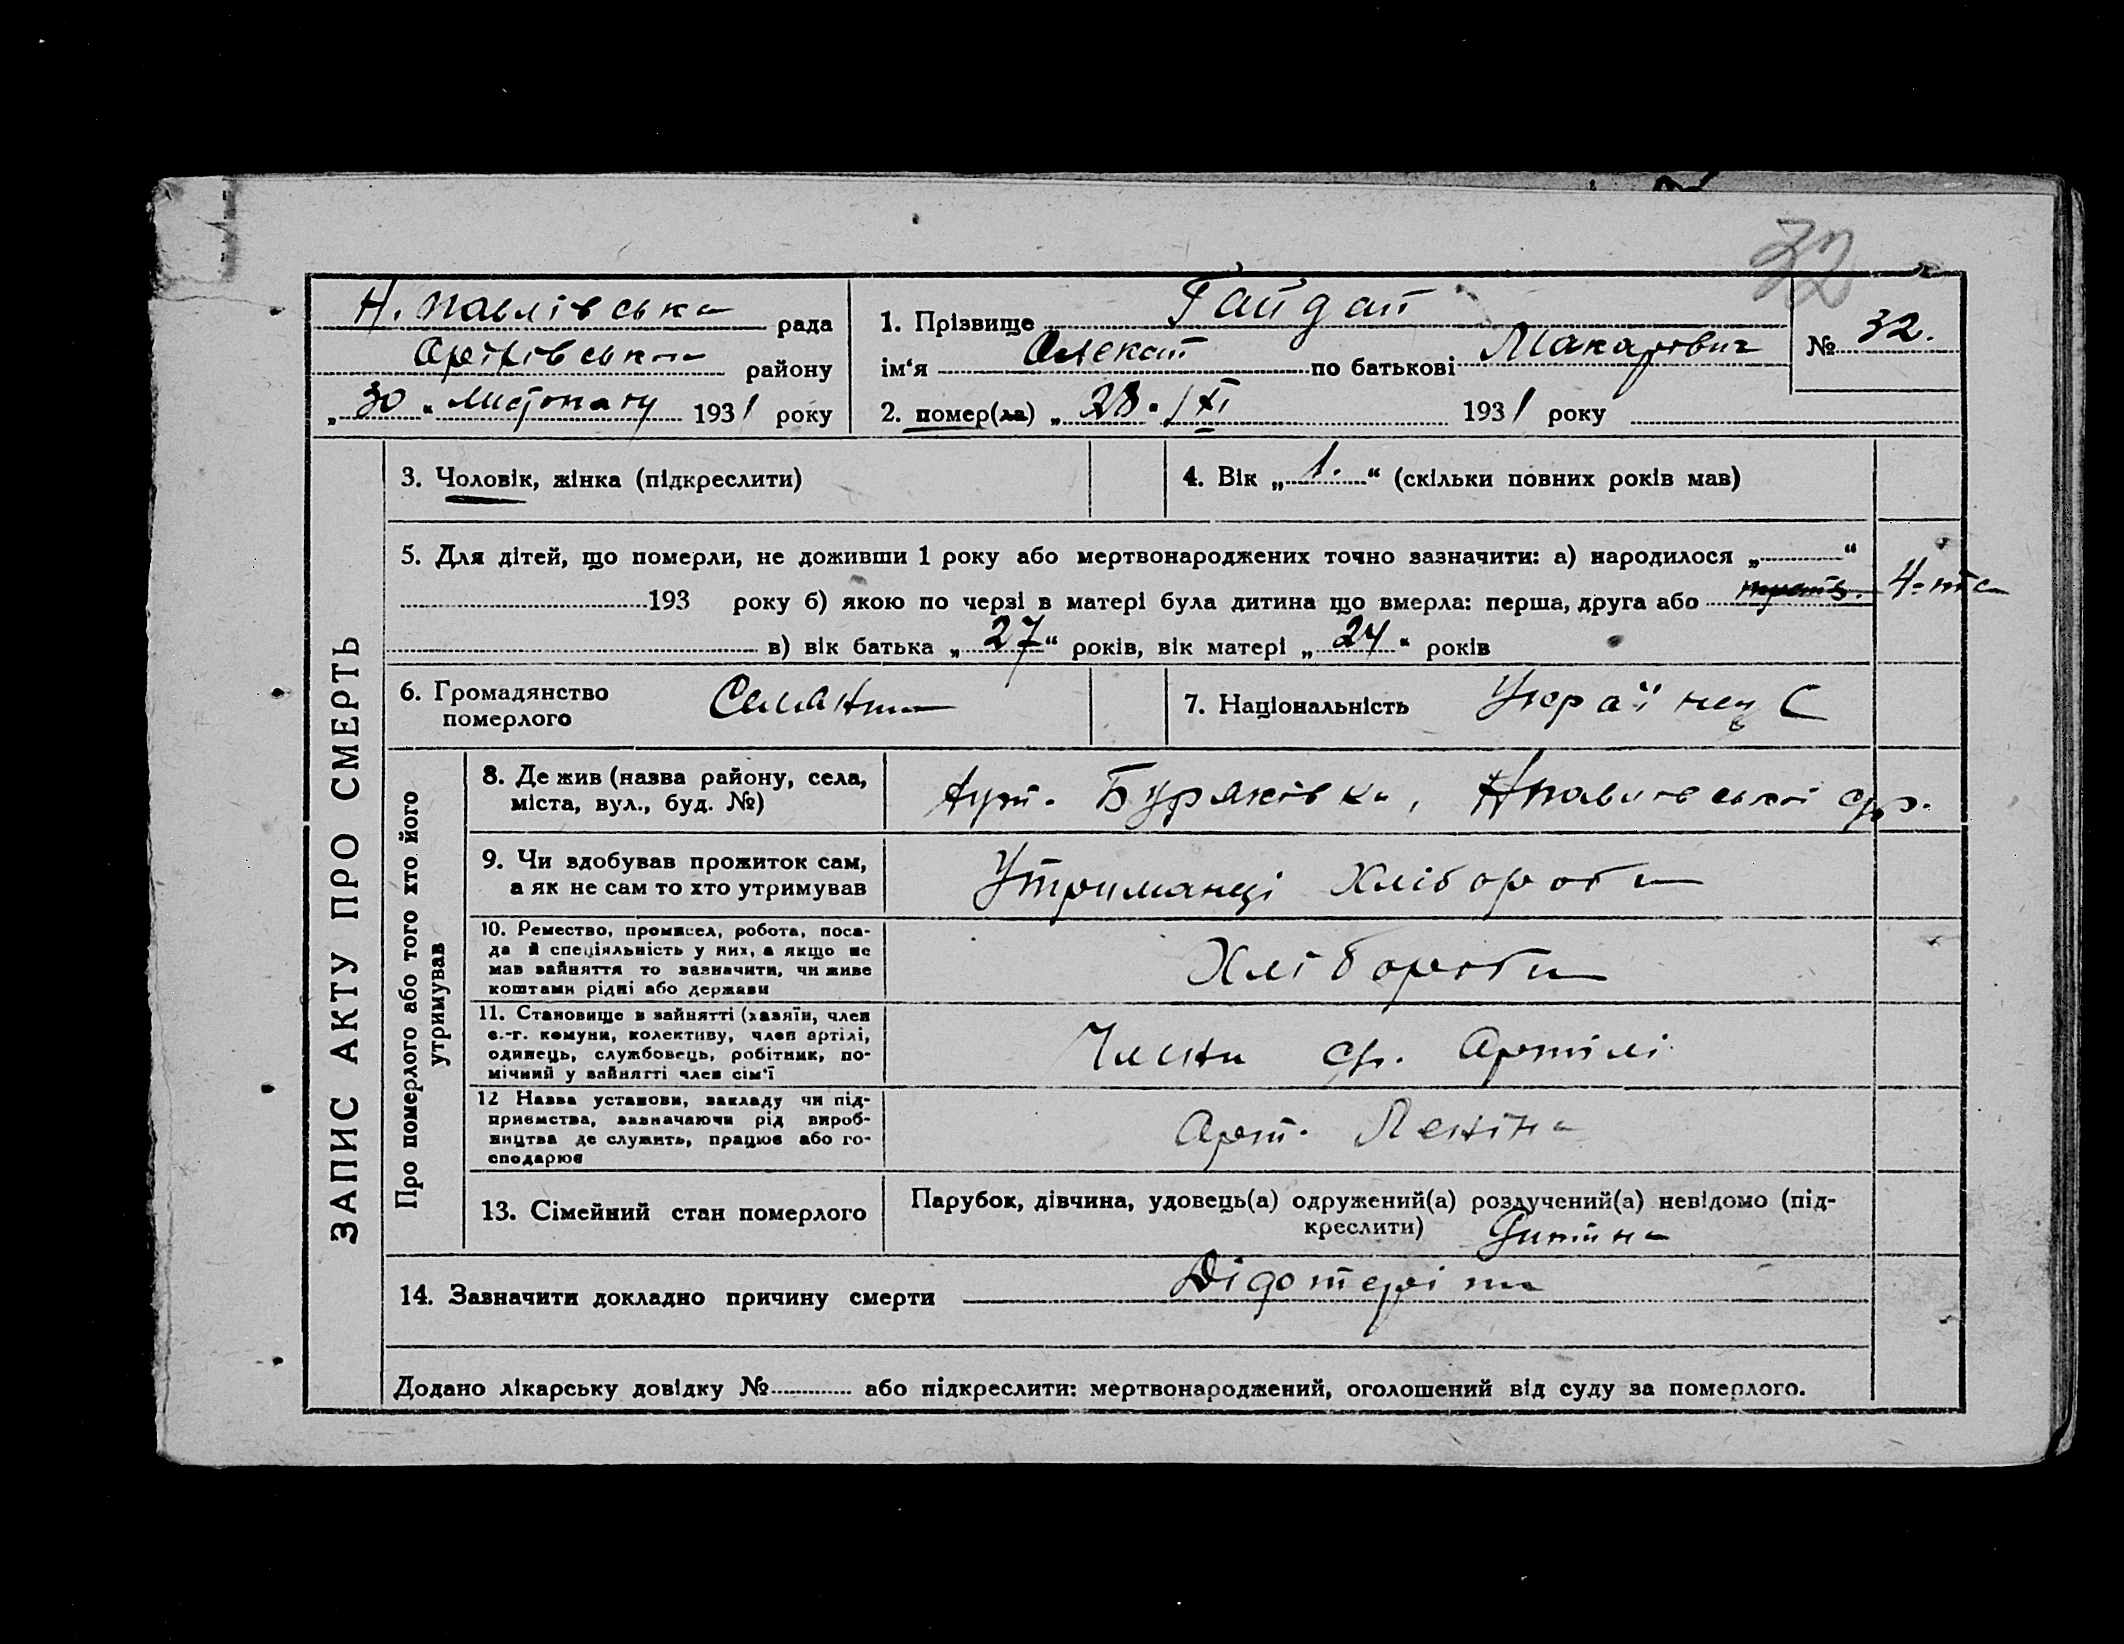 32
Н. Павлівська рада
Оріхівська району
„30“ листопаду 1931 року
1. Прізвище Гайдай
ім'я Олексій по батькові Макарович
№ 32.
2. помер(ла) „28“ XI 1931 року
ЗАПИС АКТУ ПРО СМЕРТЬ
3. Чоловік, жінка (підкреслити)
4. Вік „1.“ (скільки повних років мав)
5. Для дітей, що померли, не доживши 1 року або мертвонароджених точно зазначити: а) народилося „ “
193 року б) якою по черзі в матері була дитина що вмерла: перша, друга або третя. 4-та
в) вік батька „27“ років, вік матері „24“ років
6. Громадянство
померлого
Селянин
7. Національність Українець
Про померлого або того хто його
утримував
8. Де жив (назва району, села,
міста, вул., буд. №)
Хут. Буряківка, Нпавлівської с/р.
9. Чи здобував прожиток сам,
а як не сам то хто утримував
Утриманці Хлібороби
10. Ремество, промисел, робота, поса-
да й спеціяльність у них, а якщо не
мав зайняття то зазначити, чи живе
коштами рідні або держави
Хлібороби
11. Становище в зайнятті (хазяїн, член
с.-г. комуни, колективу, член артілі,
одинець, службовець, робітник, по-
мічний у зайнятті член сім'ї
Члени с/г. Артілі
12 Назва установи, закладу чи під-
приємства, зазначаючи рід вироб-
ництва де служить, працює або го-
сподарює
Арт. Леніна
13. Сімейний стан померлого
Парубок, дівчина, удовець(а) одружений(а) розлучений(а) невідомо (під-
креслити) Дитина
14. Зазначити докладно причину смерти
Додано лікарську довідку № або підкреслити: мертвонароджений, оголошений від суду за померлого.